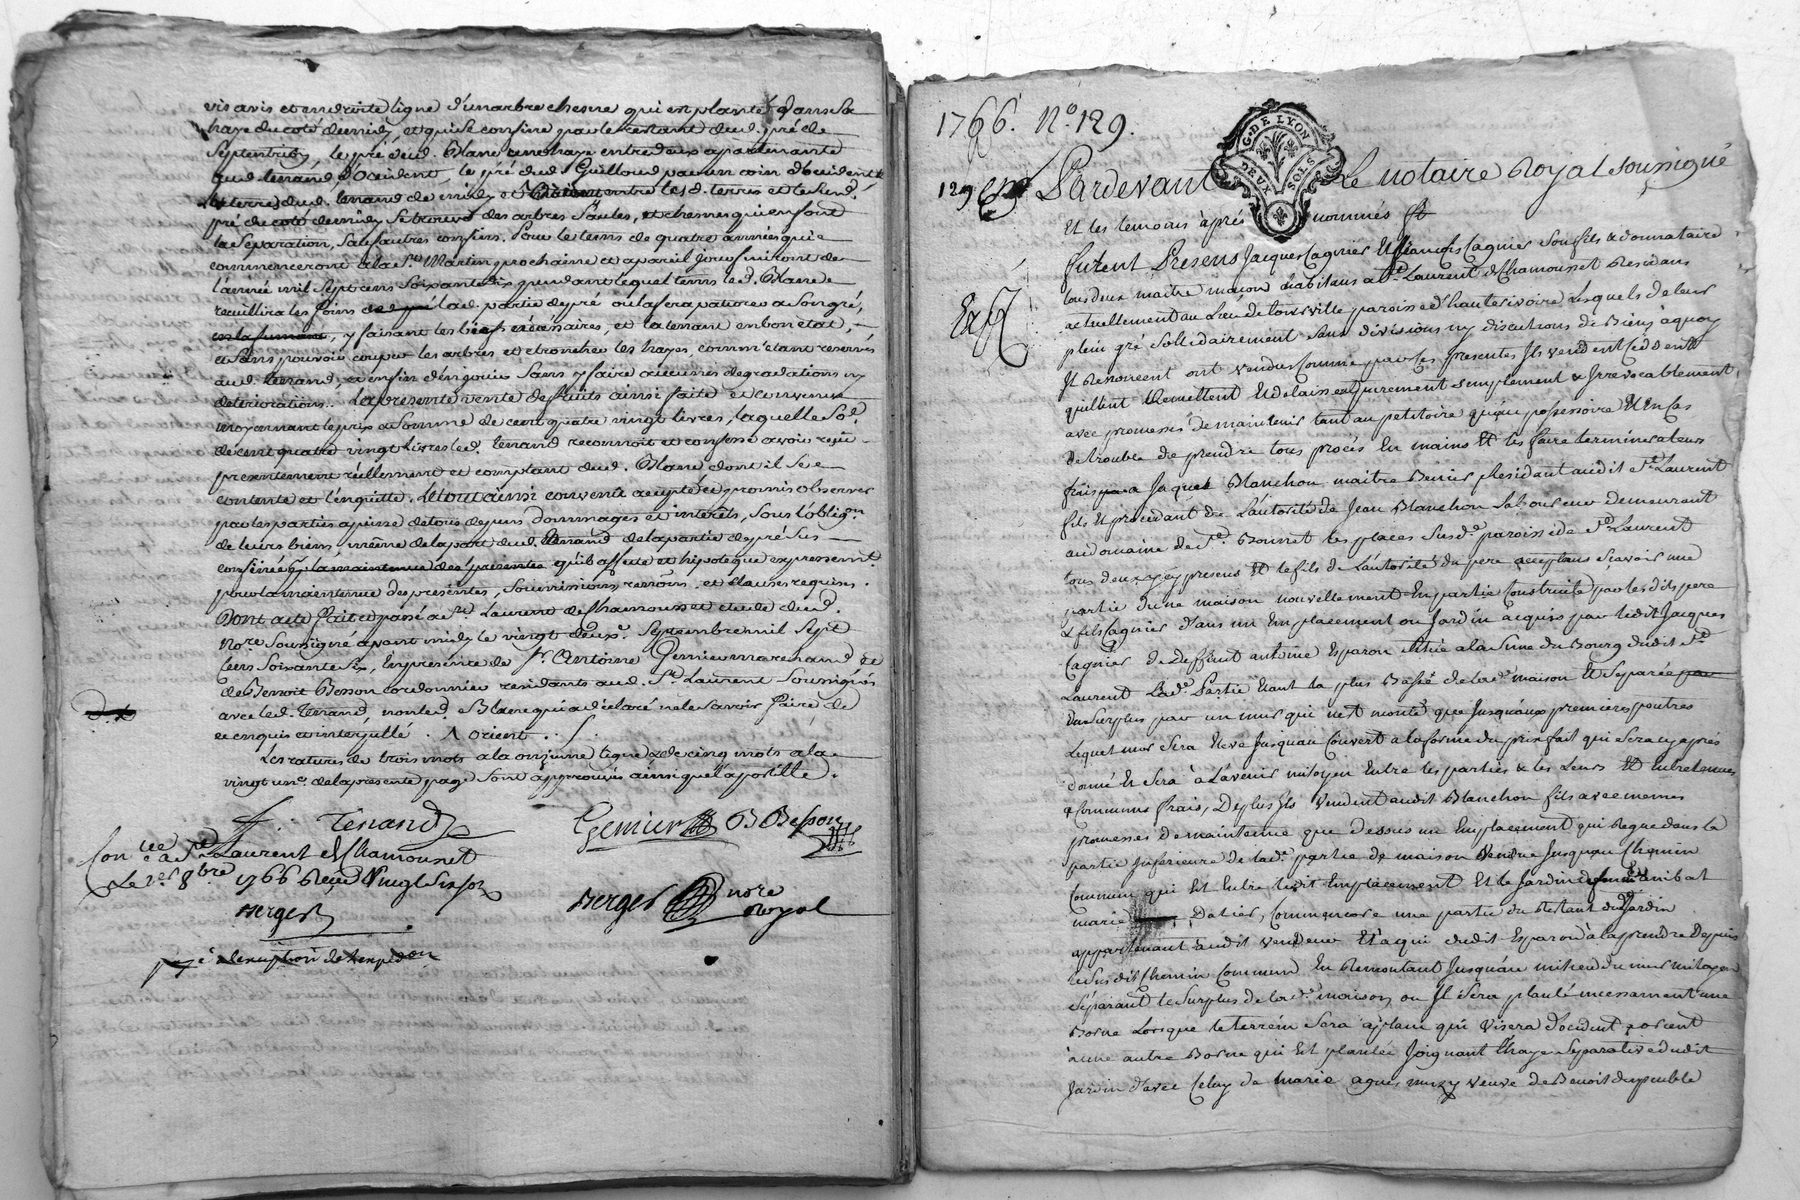 vis avis et en droite ligne d'un arbre chesne qui est planté dans la
haye du coté de midy, et qui se confine par le restant dud. pré de
septentrion, le pré dud. Blanc une haye entre deux apartenante
aud. Tenand, d'occident le pré dud. Guilloud par un coin d'occident
terres dud. Tenand de midy et entre lesd. terres et led.
pré du coté de midy se trouve des arbres saules, et chesnes qui en font
la séparation, sauf autres confins. Pour le tems de quatre années qui
commenceront a la St. Martin prochaine et a pareil jour finiront de
l'année mil sept cens soixante dix pendant lequel tems led. Blanc
recuillira les foins de lad. partie de pré ou la fera paturer a son gré,
y faisant les nécessaires, et la tenant en bon état,
et sans pouvoir couper les arbres et etroncher les hayes, comm'étant reservés
aud. Tenand, et enfin d'en jouir sans y faire aucunes degradations ny
deteriorations. La presente vente de fruits ainsi faite et convenue
moyennant le prix et somme de cent quatre vingt livres, laquelle so.e
de cent quatre vingt livres led. Tenand reconnoit et confesse avoir reçu
presentement réellement et comptant dud. Blanc dont il se
contente et l'enquitte. Le tout ainsi convenu accepté et promis observer
par les parties a peine de tous depens dommages et interets, sous l'oblig.n
de leurs biens, même de la part dud. Tenand de la partie de pré sus
confinée qu'il affecte et hipoteque expressem.t
pour la maintenue des presentes, soumissions renon.s et clauses requises.
Dont acte fait et passé a St. Laurent de Chamousset etude dud.
No.re soussigné avant midy le vingt deux.e septembre mil sept
cens soixante six, en presence de Sr. Antoine Gemier marchand et
de Benoit Besson cordonnier residants aud. St. Laurent soussignés
avec led. Tenand, non led. Blanc qui a declaré ne le savoir faire de
ce enquis et interpellé. / orient. /.
Les ratures de trois mots a la onzieme ligne et de cinq mots a la
vingt un.e de la presente page sont approuvées ainsi que l'apostille.
Tenand Gemier B Besson
Con.lee a St. Laurent de Chamousset
Le 1.er 8bre 1766 Reçu Vingt six sols
Berger Berger nore
Royal
1766. No. 129.
G. DE LYON
DEUX SOLS
129 Pardevant Le notaire Royal soussigné
Et les temoins après nommés
Exp
furent Presens Jacques Cagnier Et françois Cagnier son fils & donnataire
tous deux maitre maçon habitans a St. Laurent de Chamousset Residans
actuellement au Lieu de paroisse d'hauterivoire Lesquels de leur
plein gré sollidairement sans divisions ny discutions de Biens à quoy
Il Renoncent ont vendu comme par ces presentes Ils vendent Cedent
quittent Remettent Et delaissent purement simplement & Irrevocablement
avec promesses de maintenir tant au petitoire qu'au possessoire Et En Cas
de trouble de prendre tous procés En mains Et les faire terminer a leurs
frais a Jaques Blanchon maitre Residant audit St. Laurent
fils Et procedant de L'autorité de Jean Blanchon Laboureur demeurant
au domaine de St. Bonnet les places Susd.e paroisse de St. Laurent
tous deux icy presens Et le fils de L'autorité du pere acceptans sçavoir une
partie d'une maison nouvellement En partie Construite par lesdits pere
& fils Cagnier dans un Emplacement ou Jardin acquis par ledit Jacques
Cagnier de deffunt antoine Esparon située a la Cime du Bourg dudit St.
Laurent Lad.e Partie Etant la plus Basse de lad.e maison Et separée
du surplus par un mur qui n'est monté que Jusqu'aux premieres poutres
Lequel mur sera Elevé Jusqu'au Couvert a la forme du prix fait qui sera cy après
donné Et sera à L'avenir mitoyen Entre les parties & les Leurs Et Entretenus
a Communs frais, De plus Ils vendent audit Blanchon fils avec memes
promesses de maintenue que dessus un Emplacement qui Regne dans la
partie Inferieure de lad.e partie de maison vendue Jusqu'au Chemin
Commun qui Est Entre ledit Emplacement Et le Jardin
marie Datier, Comm'encore une partie du Restant dud. Jardin
appartenant audit vendeur Et acqui dudit Esparon à la prendre Depuis
le susdit Chemin Commun En Remontant Jusqu'au milieu du mur mitoyen
séparant le surplus de lad.e maison ou Il sera planté incessament une
Borne Lorsque le terrein sera applani qui visera d'occident a orient
à une autre Borne qui Est plantée Joignant l'haye separative dudit
Jardin d'avec Celuy de marie veuve de Benoit